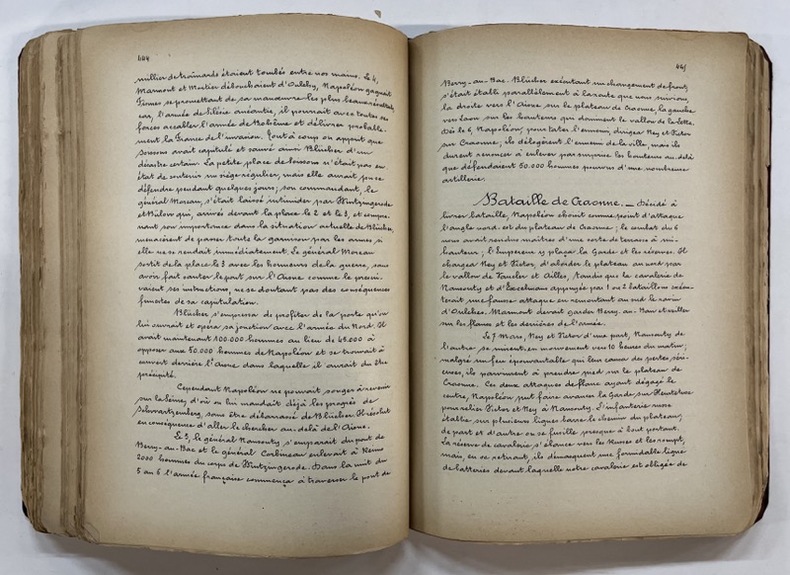 444
millier de traînards étaient tombés entre nos mains. Le 4,
Marmont et Mortier débouchaient d'Oulchy, Napoléon gagnait
Fismes se promettant de sa manœuvre les plus beaux résultats
car, l'armée de Silésie anéantie, il pourrait avec toutes ses
forces accabler l'armée de Bohême et délivrer probable-
ment la France de l'invasion. Tout à coup on apprit que
Soissons avait capitulé et sauvé ainsi Blücher d'un
désastre certain. La petite place de Soissons n'était pas en
état de soutenir un siège régulier, mais elle aurait pu se
défendre pendant quelques jours; son commandant, le
général Moreau, s'était laissé intimider par Wintzingerode
et Bulow qui, arrivés devant la place le 2 et le 3, et compre-
nant son importance dans la situation actuelle de Blücher,
menacèrent de passer toute la garnison par les armes si
elle ne se rendait immédiatement. Le général Moreau
sortit de la place le 3 avec les honneurs de la guerre, sans
avoir fait sauter le pont sur l'Aisne comme le prescri-
vaient ses instructions, ne se doutant pas des conséquences
funestes de sa capitulation.
Blücher s'empressa de profiter de la porte qu'on
lui ouvrait et opéra sa jonction avec l'armée du Nord. Il
avait maintenant 100.000 hommes au lieu de 48.000 à
opposer aux 50.000 hommes de Napoléon et se trouvait à
couvert derrière l'Aisne dans laquelle il aurait dû être
précipité.
Cependant Napoléon ne pouvait songer à revenir
sur la Seine, d'où on lui mandait déjà les progrès de
Schwartzenberg, sans être débarrassé de Blücher. Il résolut
en conséquence d'aller le chercher au-delà de l'Aisne.
Le 5, le général Nansouty s'emparait du pont de
Berry-au-Bac et le général Corbineau enlevait à Reims
2000 hommes du corps de Wintzingerode. Dans la nuit du
5 au 6 l'armée française commença à traverser le pont de
445
Berry-au-Bac. Blücher exécutant un changement de front,
s'était établi parallèlement à la route que nous suivions,
la droite vers l'Aisne sur le plateau de Craonne, la gauche
vers Laon sur les hauteurs qui dominent le vallon de la Lette.
Dès le 6, Napoléon, pour tâter l'ennemi, dirigea Ney et Victor
sur Craonne; ils délogèrent l'ennemi de la ville, mais ils
durent renoncer à enlever par surprise les hauteurs au-delà
que défendaient 50.000 hommes pourvus d'une nombreuse
artillerie.
Bataille de Craonne. — Décidé à
livrer bataille, Napoléon choisit comme point d'attaque
l'angle nord-est du plateau de Craonne; le combat du 6
nous avait rendus maîtres d'une sorte de terrasse à mi-
hauteur; l'Empereur y plaça la Garde et les réserves. Il
chargea Ney et Victor, d'aborder le plateau au nord par
le vallon de Vauclerc et Ailles, tandis que la cavalerie de
Nansouty et d'Excelmans appuyée par 1 ou 2 bataillons exécu-
terait une fausse attaque en remontant au sud le ravin
d'Oulches. Marmont devait garder Berry-au-Bac et veiller
sur les flancs et les derrières de l'armée.
Le 7 Mars, Ney et Victor d'une part, Nansouty de
l'autre se mirent en mouvement vers 10 heures du matin;
malgré un feu épouvantable qui leur causa des pertes séri-
euses, ils parvinrent à prendre pied sur le plateau de
Craonne. Ces deux attaques de flanc ayant dégagé le
centre, Napoléon put faire avancer la Garde sur Heurtebise
pour relier Victor et Ney à Nansouty. L'infanterie russe
établie sur plusieurs lignes barre le chemin du plateau;
de part et d'autre on se fusille presque à bout portant.
La réserve de cavalerie s'élance vers les Russes et les rompt,
mais, en se retirant, ils démasquent une formidable ligne
de batteries devant laquelle notre cavalerie est obligée de